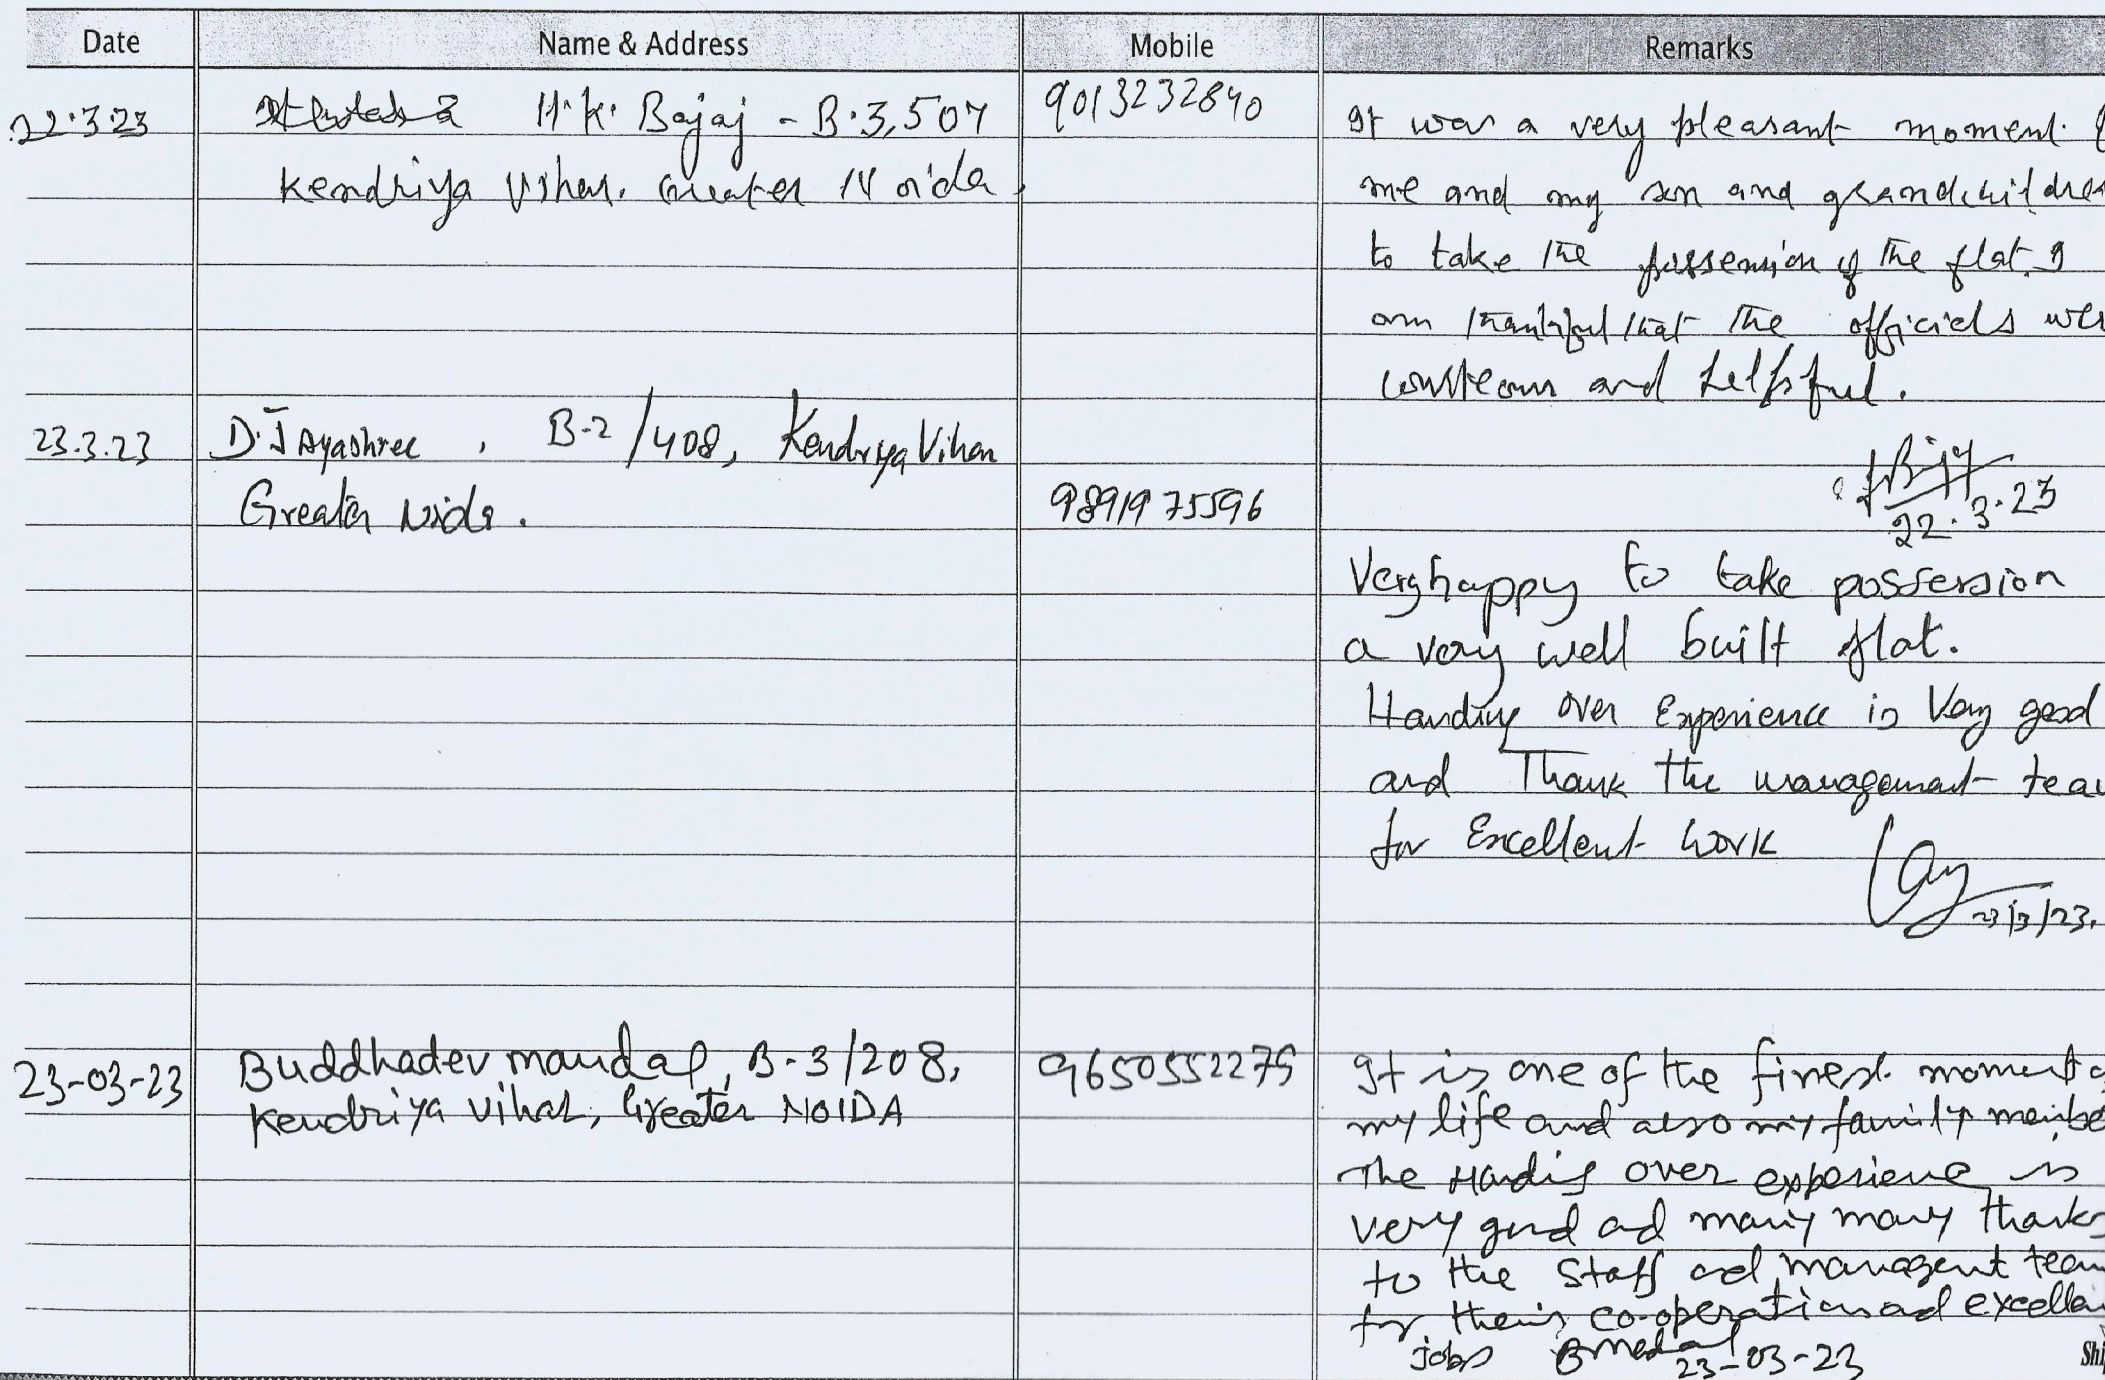 Date Name & Address Mobile Remarks
22.3.23 H.K. Bajaj - B.3,507 9013232840
Kendriya Vihar. Greater Noida
It was a very pleasant moment.
me and my son and grandchildre
to take the possession of the flat. I
am thankful that the officials wer
courteous and helpful.
22.3.23
23.3.23 D. Jayashree , B-2/408, Kendriya Vihar
Greater Noida. 9891975596
Very happy to take possession
a very well built flat.
Handing over Experience is Very good
and Thank the management tea
for Excellent work
23/3/23.
23-03-23 Buddhadev mandal, B-3/208, 9650552275
Kendriya Vihar, Greater NOIDA
It is one of the finest moment
my life and also my family membe
The Handig over experience is
very good ad many many thanks
to the staff ad managent team
for their co-operation ad excellen
jobs Bmedal
23-03-23
Shi